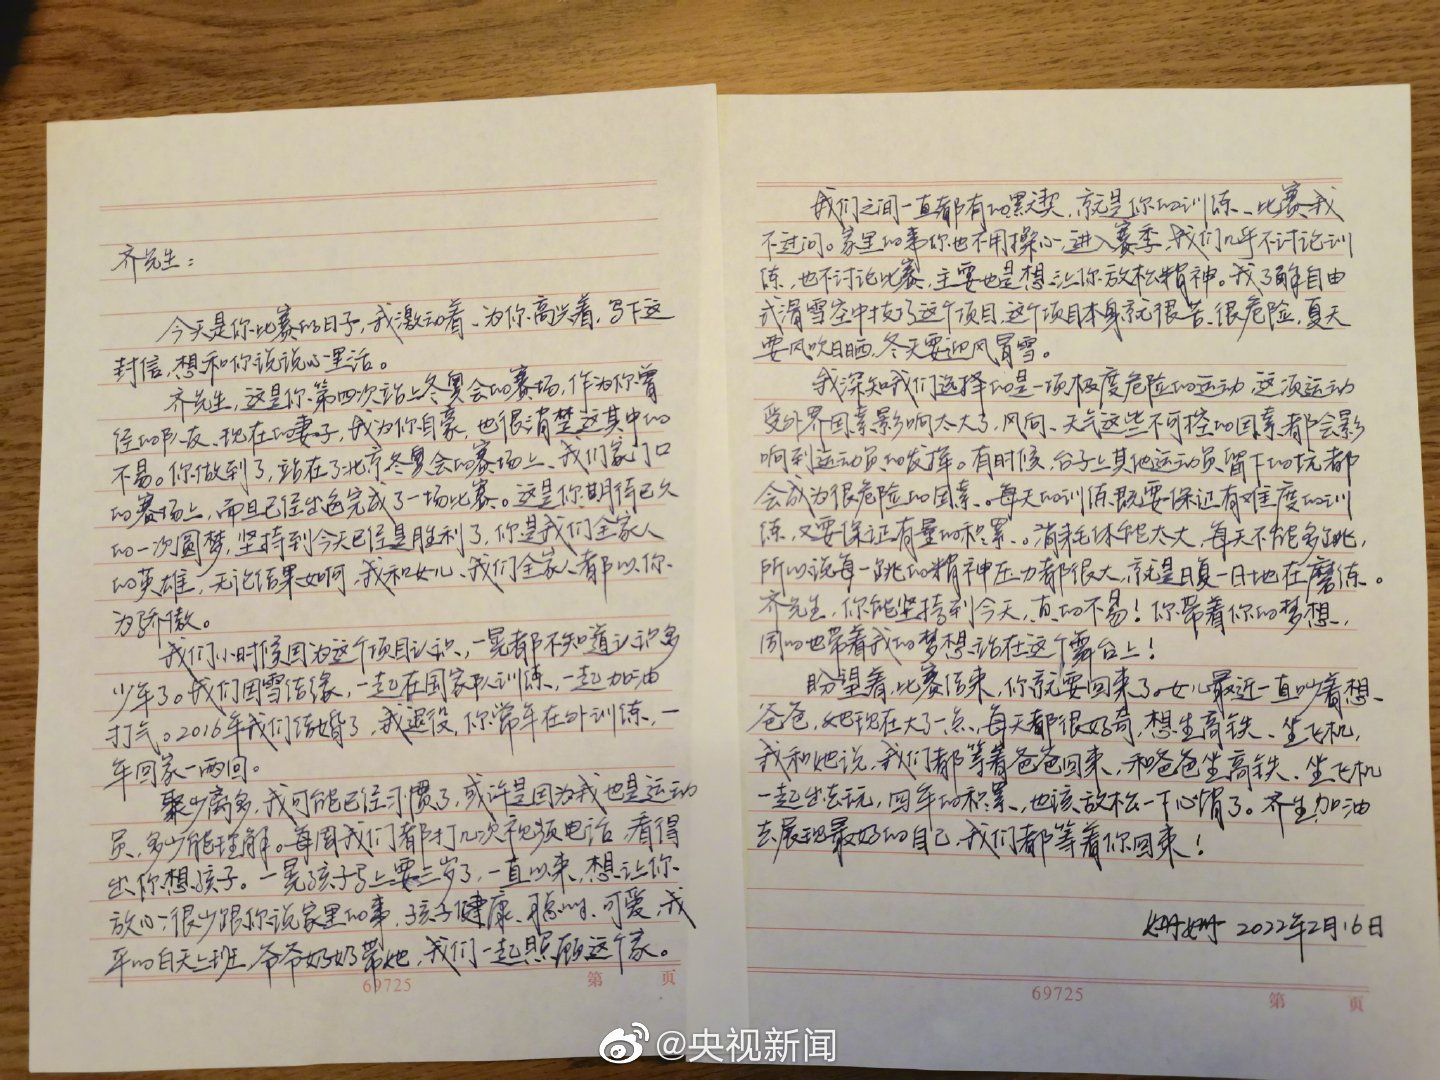 齐先生：
今天是你比赛的日子，我激动着、为你高兴着，写下这
封信，想和你说说心里话。
齐先生，这是你第四次站上冬奥会的赛场，作为你曾
经的队友、现在的妻子，我为你自豪，也很清楚这其中的
不易。你做到了，站在了北京冬奥会的赛场上、我们家门口
的赛场上，而且已经出色完成了一场比赛。这是你期待已久
的一次圆梦，坚持到今天已经是胜利了，你是我们全家人
的英雄，无论结果如何，我和女儿、我们全家人都以你
为骄傲。
我们小时候因为这个项目认识，一晃都不知道认识多
少年了。我们因雪结缘，一起在国家队训练、一起加油
打气。2016年我们结婚了，我退役，你常年在外训练，一
年回家一两回。
聚少离多，我可能已经习惯了，或许是因为我也是运动
员，多少能理解。每周我们都打几次视频电话，看得
出你想孩子。一晃孩子马上要三岁了，一直以来，想让你
放心，很少跟你说家里的事，孩子健康、聪明、可爱，我
平的白天上班，爷爷奶奶带她，我们一起照顾这个家。
69725 第 页
我们之间一直都有的默契，就是你的训练、比赛我
不过问。家里的事你也不用操心，进入赛季，我们几乎不讨论训
练，也不讨论比赛，主要也是想让你放松精神。我了解自由
式滑雪空中技巧这个项目，这个项目本身就很苦、很危险，夏天
要风吹日晒，冬天要迎风冒雪。
我深知我们选择的是一项极度危险的运动，这项运动
受外界因素影响太大了，风向、天气这些不可控的因素都会影
响到运动员的发挥。有时候，台子上其他运动员留下的坑都
会成为很危险的因素。每天的训练既要保证有难度的训
练，又要保证有量的积累。消耗体能太大，每天不能多跳，
所以说每一跳的精神压力都很大，就是日复一日地在磨练。
齐先生，你能坚持到今天，真的不易！你带着你的梦想，
同时也带着我的梦想站在这个舞台上！
盼望着，比赛结束，你就要回来了。女儿最近一直吵着想
爸爸，她现在大了一点，每天都很好奇，想坐高铁、坐飞机，
我和她说，我们都等着爸爸回来，和爸爸坐高铁、坐飞机
一起出去玩，四年的积累，也该放松一下心情了。齐先生加油
去展现最好的自己，我们都等着你回来！
2022年2月16日
69725 第 页
@央视新闻